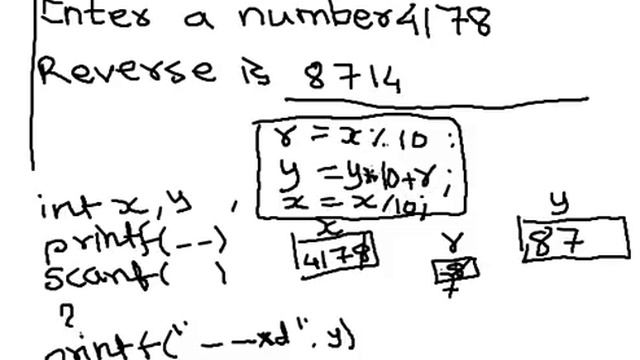 Enter a number 4178
Reverse is 8714
r = x % 10 ;
y = y*10+r ;
x = x/10;
int x, y ,
printf(---)
scanf( )
?
printf("---%d", y)
x
4178
r
8
7
y
87